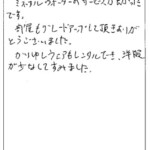 ミネラルウォーターのサービスが助かる
です。
部屋もグレードアップして頂きありが
とうございました。
かいゆしウェアもレンタルでき、洋服
が少なくてすみました。